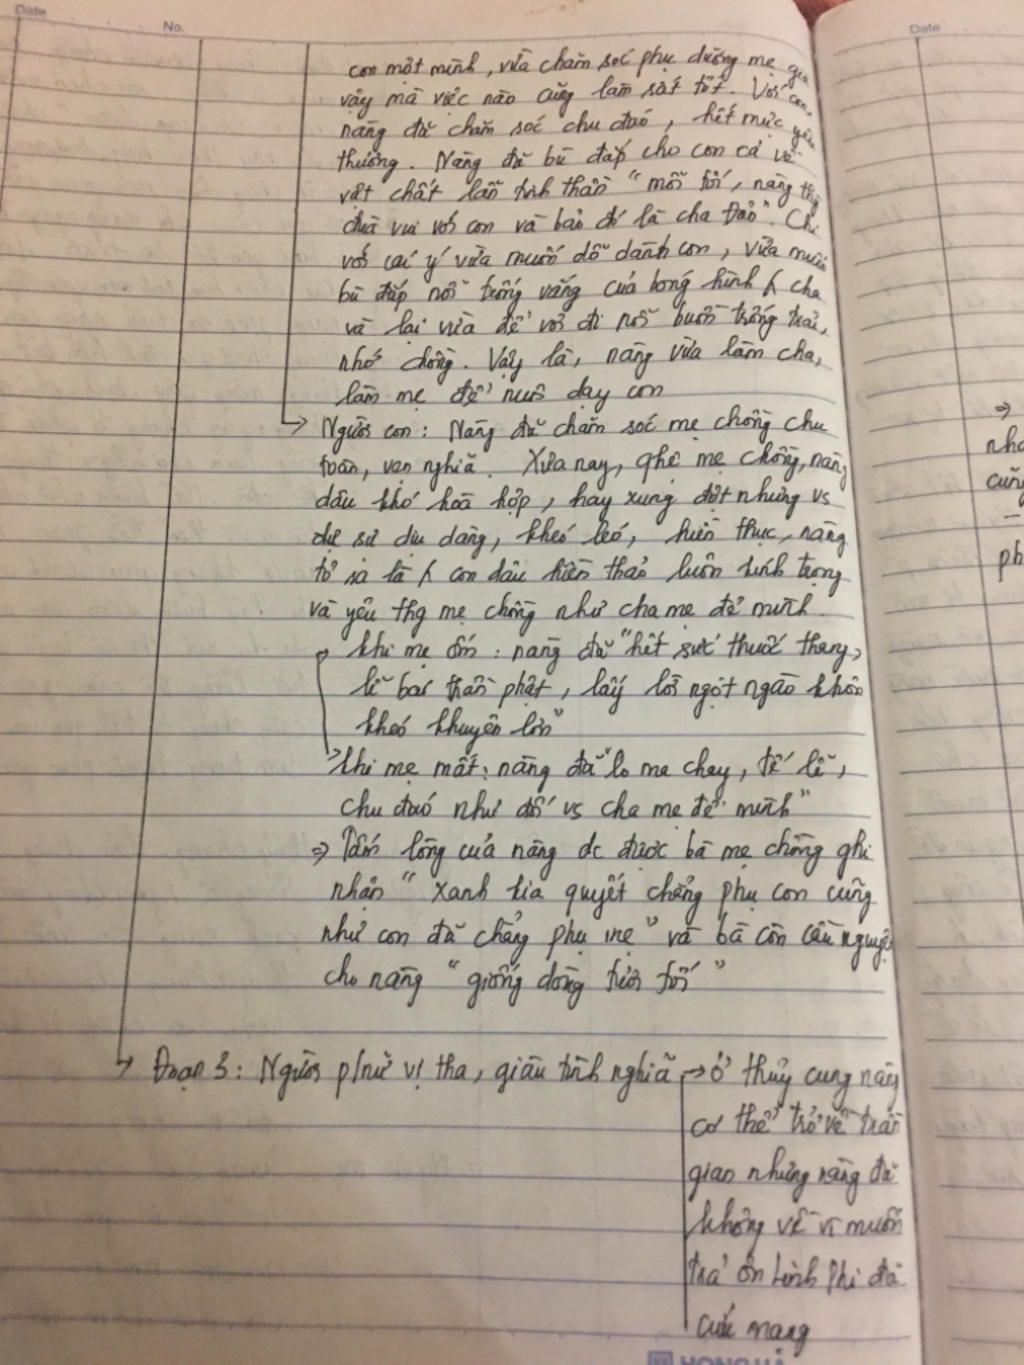 Date
No.
con một mình, vừa chăm sóc phụ dưỡng mẹ già
vậy mà việc nào cũng làm rất tốt. Với con,
nàng đã chăm sóc chu đáo, hết mực yêu
thương. Nàng đã bù đắp cho con cả về
vật chất lẫn tinh thần "mỗi tối, nàng
đùa vui với con và bảo đó là cha Đản". Chỉ
với cái ý vừa muốn dỗ dành con, vừa muốn
bù đắp nỗi trống vắng của bóng hình cha
và lại vừa để vơi đi nỗi buồn trống trải,
nhớ chồng. Vậy là, nàng vừa làm cha,
làm mẹ để nuôi dạy con
→ Người con: Nàng đã chăm sóc mẹ chồng chu
toàn, vẹn nghĩa. Xưa nay, mẹ chồng, nàng
dâu khó hoà hợp, hay xung đột nhưng vs
sự dịu dàng, khéo léo, hiền thục, nàng
tỏ ra là 1 con dâu hiền thảo luôn kính trọng
và yêu thg mẹ chồng như cha mẹ đẻ mình.
khi mẹ ốm: nàng đã "hết sức thuốc thang,
lễ bái thần phật, lấy lời ngọt ngào khôn
khéo khuyên lơn"
khi mẹ mất: nàng đã "lo ma chay, tế lễ,
chu đáo như đối vs cha mẹ đẻ mình"
⇒ Tấm lòng của nàng đc được bà mẹ chồng ghi
nhận "xanh kia quyết chẳng phụ con cũng
như con đã chẳng phụ mẹ" và bà còn cầu nguyện
cho nàng "giống dòng tươi tốt"
→ Đoạn 3: Người p/nữ vị tha, giàu tình nghĩa → Ở thủy cung nàng
có thể trở về trần
gian nhưng nàng đã
không về vì muốn
trả ơn Linh Phi đã
cứu mạng
HONG HA
Date
⇒
cũng
ph